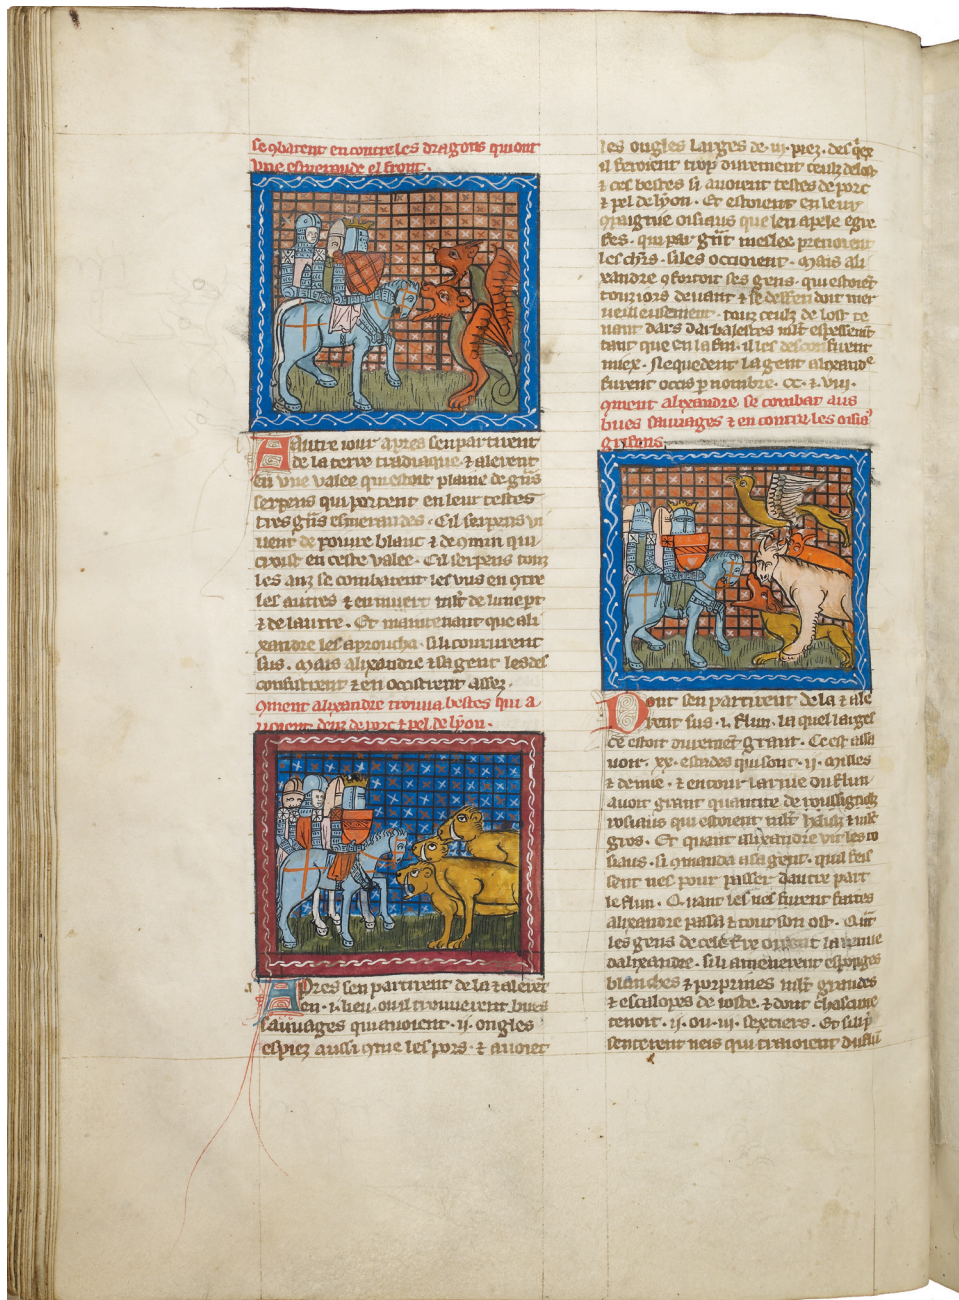 se ꝯbatent en contre les dragons qui ont
une esmeraude el front.
Lautre iour apres sen partirent
de la terre tradiaque ⁊ alerent
en une valee qui estoit plaine de gñs
serpens qui portent en leur testes
tres gñs esmeraudes. Cil serpens vi
uent de poiure blanc ⁊ de ꝯmin qui
croist en ceste valee. Cil serpens touz
les anz se combatent les vns en ꝯtre
les autres ⁊ en muert mlt̃ de lune pt
⁊ de lautre. Et maintenant que ali
xandre les aproucha. si li coururent
sus. Mais alixandre ⁊ sa gent les des
confistrent ⁊ en occistrent assez.
ꝯment alixandre trouua bestes qui a
uoient de porc ⁊ pel de lyon.
Apres sen partirent de la ⁊ alerẽt
en .i. lieu. ou il trouuerent bues
sauuages qui auoient .ii. ongles
es piez aussi ꝯme les pors. ⁊ auoiẽt
les ongles larges de .iii. piez. des q̃ex
il feroient trop durement ceulz de lost
⁊ ces bestes si auoient testes de porc
⁊ pel de lyon. Et estoient en leur
ꝯpaignie oisiaus que len apele egri
fes. qui par gñt meslee prenoient
les chrs. ⁊ les occioient. Mais ali
xandre ꝯfortoit ses gens. qui estoiẽt
touriors deuant ⁊ se deffendoit mer
ueilleusement. touz ceulz de lost te
nant dars darbalestes mlt̃ espessemt̃
tant que en la fin. il les desconfirent
miex. Neque dent la gent alixandᵉ
furent occis ꝑ nombre. CC. ⁊ .viii.
ꝯment alixandre se combat aus
bues sauuages ⁊ en contre les oisiaꝰ
grifons.
Dont sen partirent de la ⁊ ale
rent sus .i. flun. la quel larges
ce estoit durement grant. Ce est assa
uoir. xx. estades qui sont .ii. milles
⁊ demie. ⁊ en tour la riue du flun
auoit grant quantite de
rosiaus qui estoient mlt̃ hauz ⁊ mlt̃
gros. Et quant alixandre vit les ro
siaus. si ꝯmanda a sa gent. quil feis
sent nes pour passer dautre part
le flun. Quant les nes furent faites
alixandre passa ⁊ tout son ost. Qñt
les gens de cele t̃re oirent la venue
dalixandre. si li amenerent esponges
blanches ⁊ porprines mlt̃ grandes
⁊ escalopes de ioste. ⁊ dont chascune
tenoit .ii. ou .iii. sextiers. Et si li p̃
senterent neis qui traioient du flũ